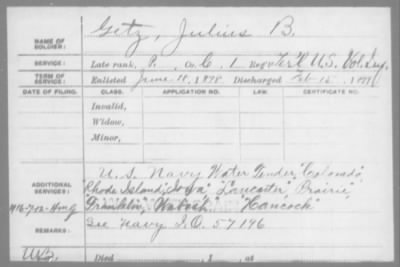 Getz, Julius B.
NAME OF SOLDIER:
SERVICE: Late rank, P. Co. C, 1 Reg't Ter'l U.S. Vol. Inf.
TERM OF SERVICE: Enlisted June 18, 1898 Discharged Feb 15, 1899
DATE OF FILING. CLASS. APPLICATION NO. LAW. CERTIFICATE NO.
Invalid,
Widow,
Minor,
U.S. Navy Water Tender, "Colorado"
ADDITIONAL SERVICES: "Rhode Island," "Iowa" "Lancaster" "Prairie,"
"Franklin," "Wabash" "Hancock"
REMARKS: See Navy S.O. 57196
Died , 1 , at